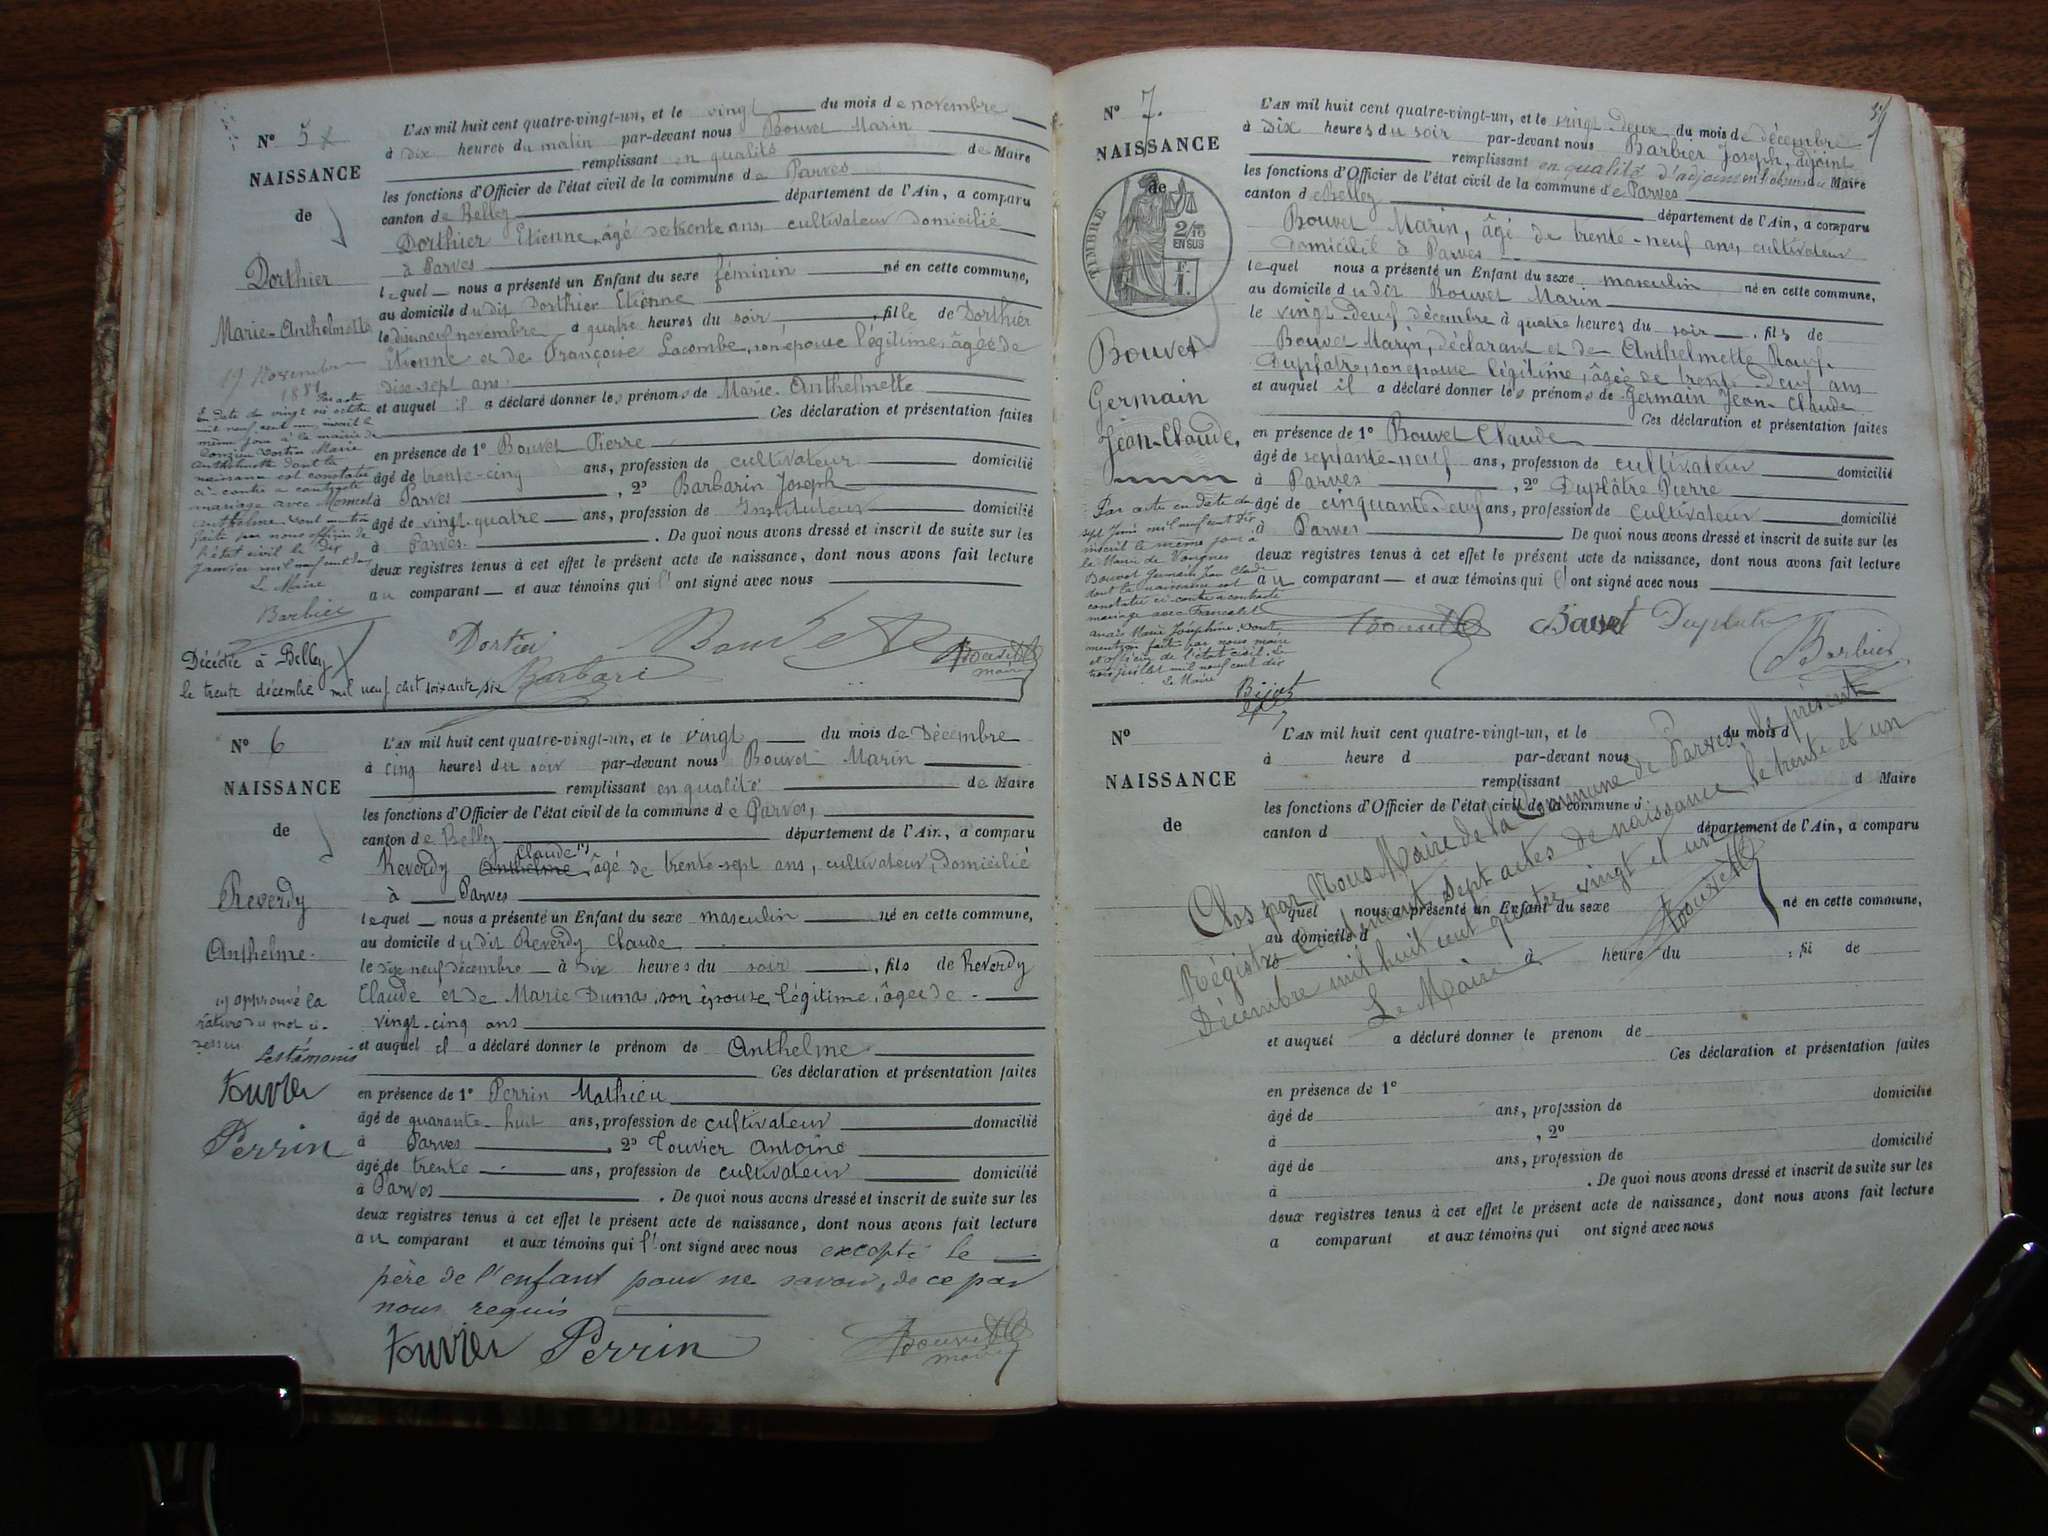 N° 5
NAISSANCE
de
Dorthier
Marie-Anthelmette
19 Novembre
1881
Par acte
en date du vingt six octobre
mil neuf cent un, inscrit le
même jour à la mairie de
Marie
Anthelmette dont la
naissance est constatée
ci-contre a contracté
mariage avec
Anthelme. Dont mention
faite par nous officier de
l'état civil le dix
janvier mil neuf cent deux
Le Maire
Barbier
L'AN mil huit cent quatre-vingt-un, et le vingt du mois de novembre
à dix heures du matin par-devant nous Bouvet Marin
remplissant en qualité de Maire
les fonctions d'Officier de l'état civil de la commune de Parves
canton de Belley département de l'Ain, a comparu
Dorthier Etienne, âgé de trente ans, cultivateur domicilié
à Parves
lequel nous a présenté un Enfant du sexe féminin né en cette commune,
au domicile dudit Dorthier Etienne
le dix neuf novembre à quatre heures du soir, fille de Dorthier
Etienne et de Françoise Lacombe, son épouse légitime, âgée de
dix-sept ans
et auquel il a déclaré donner les prénoms de Marie-Anthelmette
Ces déclaration et présentation faites
en présence de 1° Bouvet Pierre
âgé de trente-cinq ans, profession de cultivateur domicilié
à Parves, 2° Barbarin Joseph
âgé de vingt-quatre ans, profession de Instituteur domicilié
à Parves. De quoi nous avons dressé et inscrit de suite sur les
deux registres tenus à cet effet le présent acte de naissance, dont nous avons fait lecture
au comparant et aux témoins qui l'ont signé avec nous
Dortier Bouvet
Bouvet
maire
Décédée à Belley
le trente décembre mil neuf cent soixante six
N° 6
NAISSANCE
de
Reverdy
Anthelme.
(1) approuvé la
rature du mot ci-
dessus
Les témoins
Touvier
Perrin
L'AN mil huit cent quatre-vingt-un, et le vingt du mois de Décembre
à cinq heures du soir par-devant nous Bouvet Marin
remplissant en qualité de Maire
les fonctions d'Officier de l'état civil de la commune de Parves,
canton de Belley département de l'Ain, a comparu
Claude (1)
Reverdy Anthelme, âgé de trente-sept ans, cultivateur, domicilié
à Parves
lequel nous a présenté un Enfant du sexe masculin né en cette commune,
au domicile dudit Reverdy Claude
le dix neuf décembre à dix heures du soir, fils de Reverdy
Claude et de Marie Dumas, son épouse légitime, âgée de
vingt-cinq ans
et auquel il a déclaré donner le prénom de Anthelme
Ces déclaration et présentation faites
en présence de 1° Perrin Mathieu
âgé de quarante-huit ans, profession de cultivateur domicilié
à Parves, 2° Touvier Antoine
âgé de trente ans, profession de cultivateur domicilié
à Parves. De quoi nous avons dressé et inscrit de suite sur les
deux registres tenus à cet effet le présent acte de naissance, dont nous avons fait lecture
au comparant et aux témoins qui l'ont signé avec nous excepté le
père de l'enfant pour ne savoir, de ce par
nous requis
Touvier Perrin Bouvet
maire
N° 7.
NAISSANCE
de
TIMBRE
2/10
EN SUS
F.
1.
Bouvet
Germain
Jean-Claude,
Par acte en date du
sept Juin mil neuf cent dix
inscrit le même jour à
la Mairie de Vongnes
Bouvet Germain Jean Claude
dont la naissance est
constatée ci-contre a contracté
mariage avec Francalet
Anaïs Marie Joséphine. Dont
mention faite par nous maire
et officier de l'état civil. Le
trois juillet mil neuf cent dix
Le Maire
L'AN mil huit cent quatre-vingt-un, et le vingt-deux du mois de décembre
à dix heures du soir par-devant nous Barbier Joseph, adjoint
remplissant en qualité d'adjoint Maire
les fonctions d'Officier de l'état civil de la commune de Parves
canton de Belley département de l'Ain, a comparu
Bouvet Marin, âgé de trente-neuf ans, cultivateur
domicilié à Parves
lequel nous a présenté un Enfant du sexe masculin né en cette commune,
au domicile dudit Bouvet Marin
le vingt-deux décembre à quatre heures du soir, fils de
Bouvet Marin, déclarant et de Anthelmette
Duplatre, son épouse légitime, âgée de trente-deux ans
et auquel il a déclaré donner les prénoms de Germain Jean-Claude
Ces déclaration et présentation faites
en présence de 1° Bouvet Claude
âgé de septante-neuf ans, profession de cultivateur domicilié
à Parves, 2° Duplâtre Pierre
âgé de cinquante-deux ans, profession de cultivateur domicilié
à Parves De quoi nous avons dressé et inscrit de suite sur les
deux registres tenus à cet effet le présent acte de naissance, dont nous avons fait lecture
au comparant et aux témoins qui l'ont signé avec nous
Bouvet Bouvet Duplatre
Barbier
N°
NAISSANCE
de
L'AN mil huit cent quatre-vingt-un, et le du mois d
à heure d par-devant nous
remplissant d Maire
les fonctions d'Officier de l'état civil de la commune d
canton d département de l'Ain, a comparu
quel nous a présenté un Enfant du sexe né en cette commune,
au domicile d
à heure du , fil de
et auquel a déclaré donner le prénom de
Ces déclaration et présentation faites
en présence de 1°
âgé de ans, profession de domicilié
à , 2°
âgé de ans, profession de domicilié
à . De quoi nous avons dressé et inscrit de suite sur les
deux registres tenus à cet effet le présent acte de naissance, dont nous avons fait lecture
a comparant et aux témoins qui ont signé avec nous
Clos par Nous Maire de la Commune de Parves, le présent
Régistre contenant sept actes de naissance, le trente et un
Décembre mil huit cent quatre vingt et un
Le Maire
Bouvet